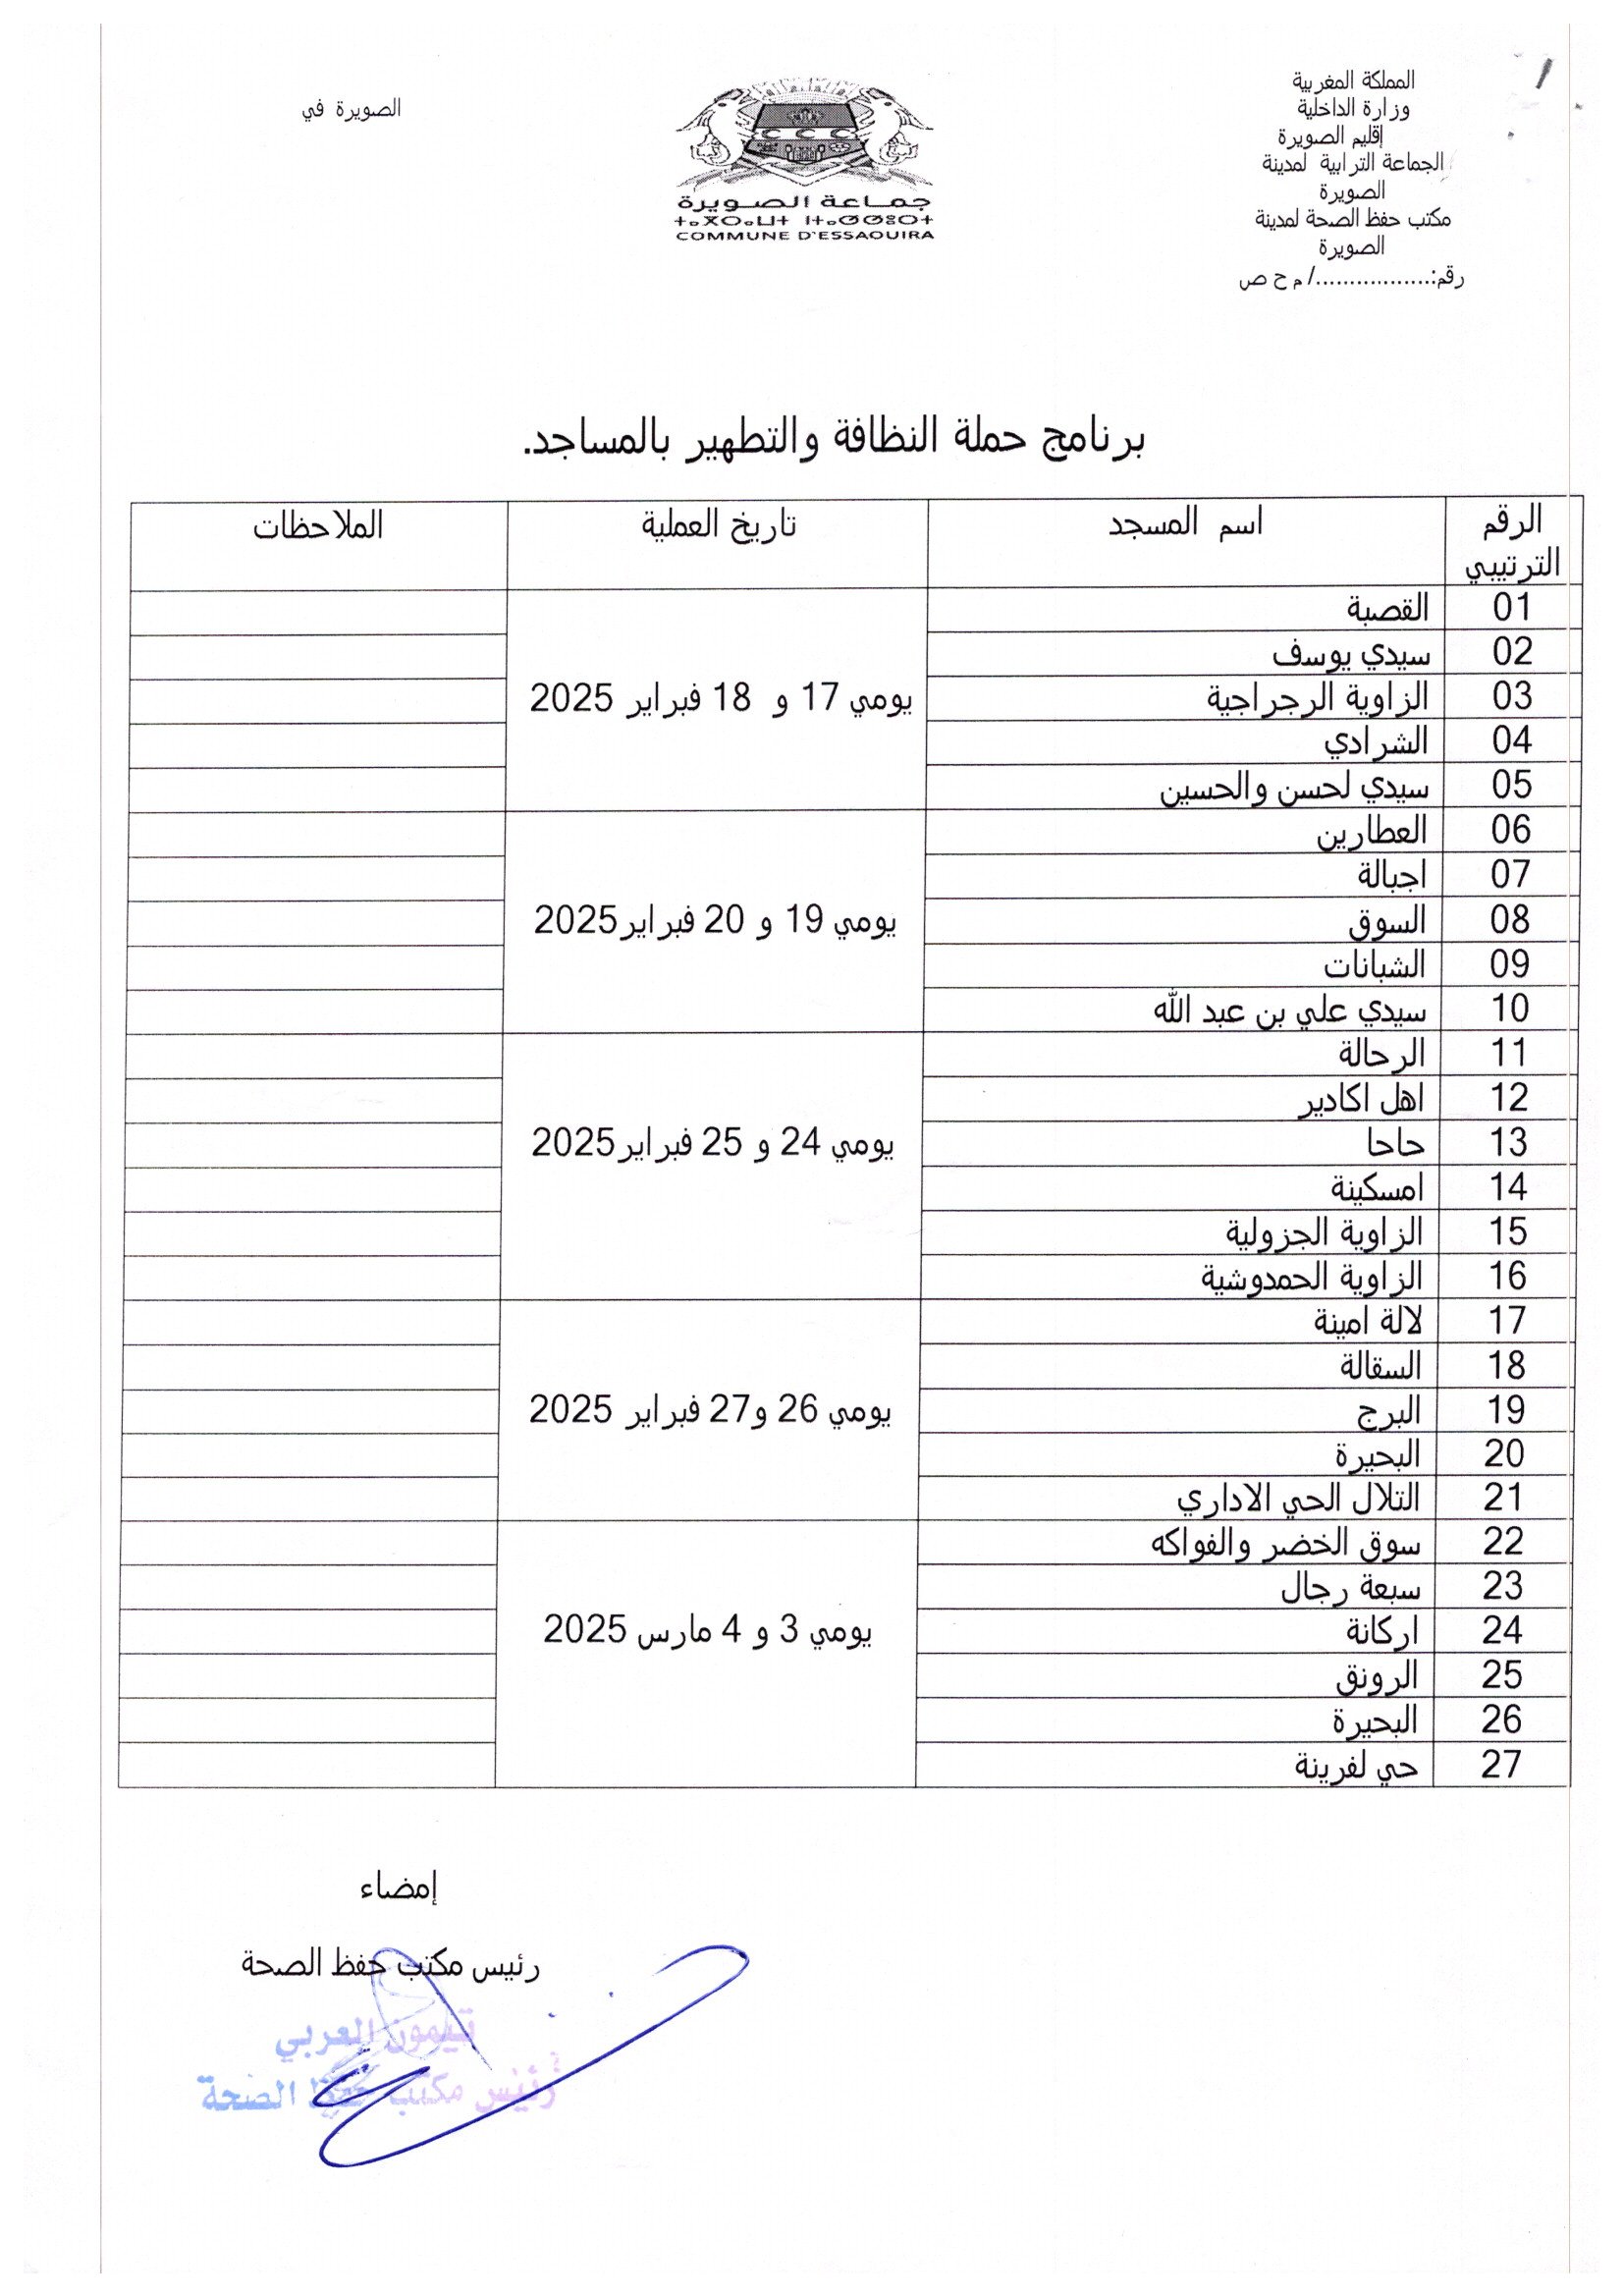 المملكة المغربية
وزارة الداخلية
إقليم الصويرة
الجماعة الترابية لمدينة
الصويرة
مكتب حفظ الصحة لمدينة
الصويرة
رقم:................./ م ح ص
جماعة الصويرة
ⵜⴰⴳⵔⴰⵡⵜ ⵏⵜⴰⵙⵙⵓⵔⵜ
COMMUNE D'ESSAOUIRA
الصويرة في
برنامج حملة النظافة والتطهير بالمساجد.
الرقم الترتيبي اسم المسجد تاريخ العملية الملاحظات
01 القصبة
02 سيدي يوسف
03 الزاوية الرجراجية يومي 17 و 18 فبراير 2025
04 الشرادي
05 سيدي لحسن والحسين
06 العطارين
07 اجبالة
08 السوق يومي 19 و 20 فبراير2025
09 الشبانات
10 سيدي علي بن عبد الله
11 الرحالة
12 اهل اكادير
13 حاحا يومي 24 و 25 فبراير2025
14 امسكينة
15 الزاوية الجزولية
16 الزاوية الحمدوشية
17 لالة امينة
18 السقالة
19 البرج يومي 26 و27 فبراير 2025
20 البحيرة
21 التلال الحي الاداري
22 سوق الخضر والفواكه
23 سبعة رجال
24 اركانة يومي 3 و 4 مارس 2025
25 الرونق
26 البحيرة
27 حي لفرينة
إمضاء
رئيس مكتب حفظ الصحة
تيمون العربي
رئيس مكتب حفظ الصحة